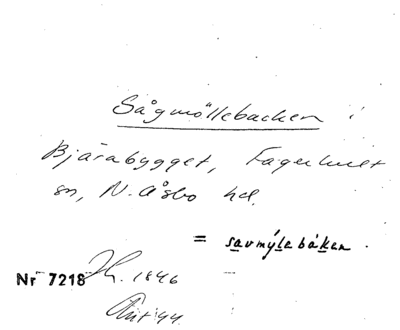 Sågmöllebacken i
Bjärabygget, Fagerhult
sn, N. Åsbo hd.
= savmýlebáken.
Nr 7218 1846